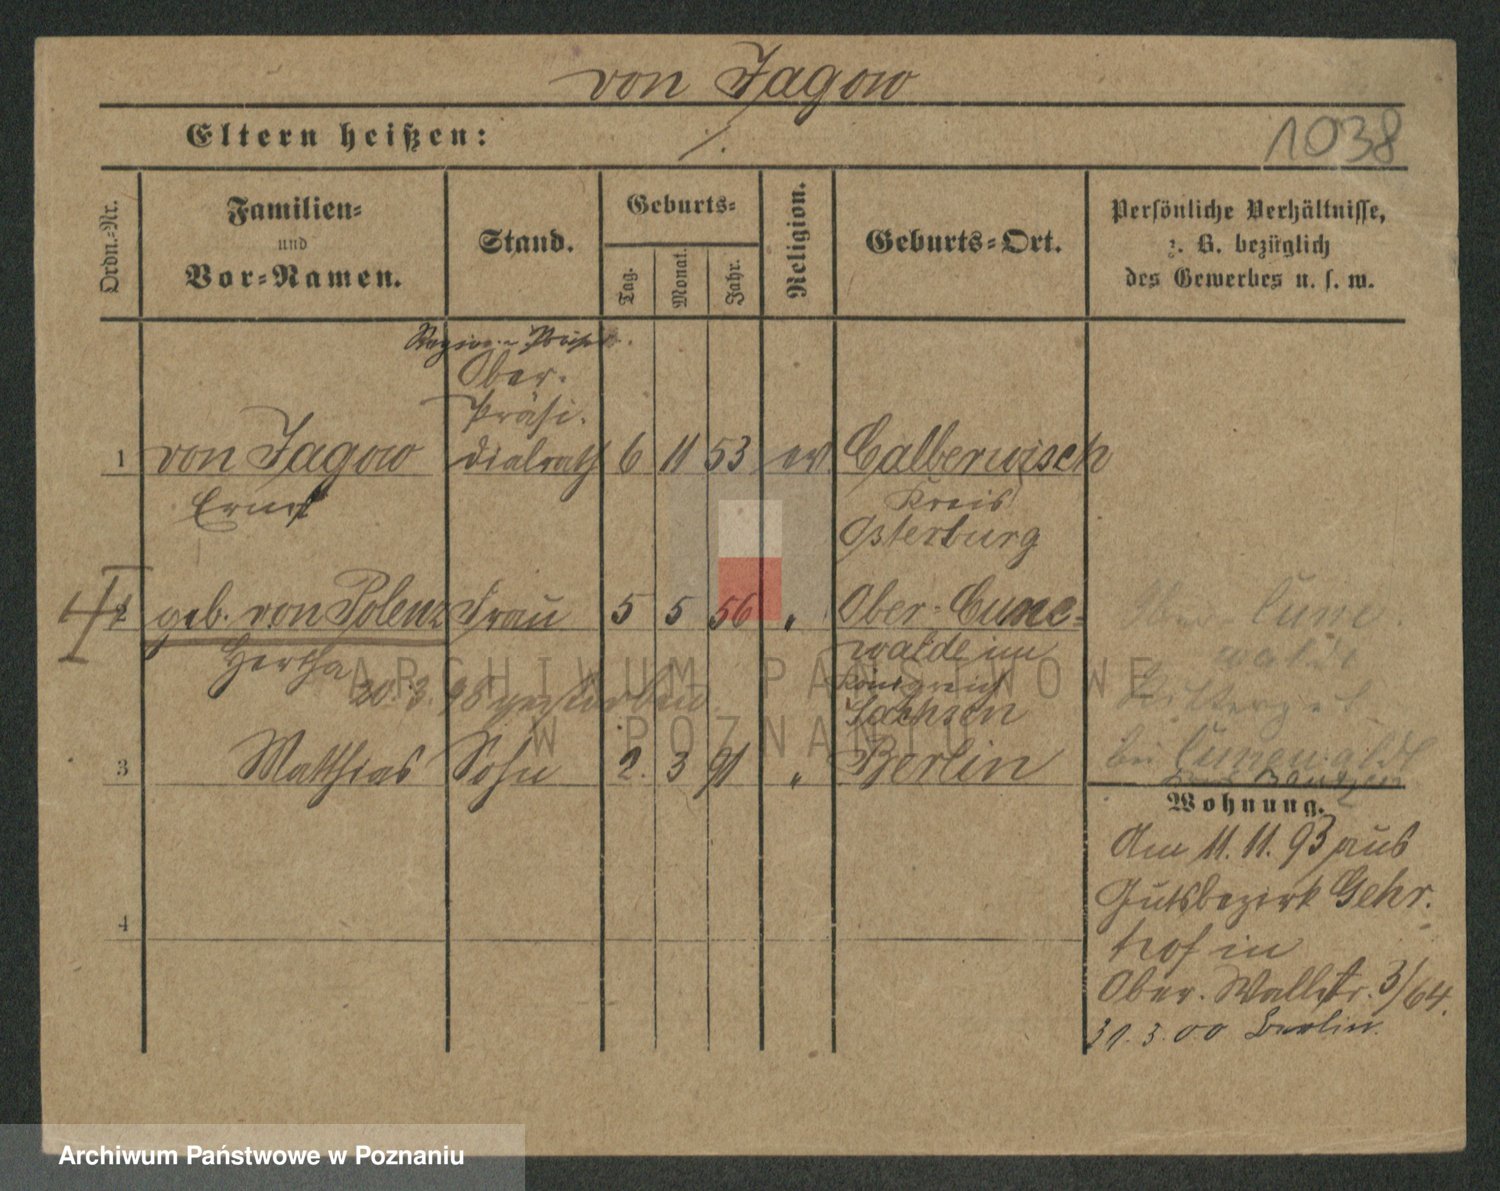 von Jagow
Eltern heißen: ./.
1038
Ordn.-Nr.
Familien-
und
Vor-Namen.
Stand.
Geburts-
Tag.
Monat.
Jahr.
Religion.
Geburts-Ort.
Persönliche Verhältnisse,
z. B. bezüglich
des Gewerbes u. s. w.
Ober-
Präsi-
1 von Jagow dialrath 6 11 53 ev. Calberwisch
Ernst
Kreis
Osterburg
2 geb. von Polenz Frau 5 5 56 " Ober-Cune-
Hertha
walde im
Königreich
Sachsen
20.3.98 gestorben
Ober-Cune-
walde
Rittergut
bei Cunewalde
Bautzen
3 Matthias Sohn 2. 3 91 " Berlin
4
Wohnung.
Am 11.11.93 aus
Gutsbezirk Gehr.
hof in
Ober-Wallstr. 3/64.
31.3.00 Berlin.
ARCHIWUM PAŃSTWOWE
W POZNANIU
Archiwum Państwowe w Poznaniu